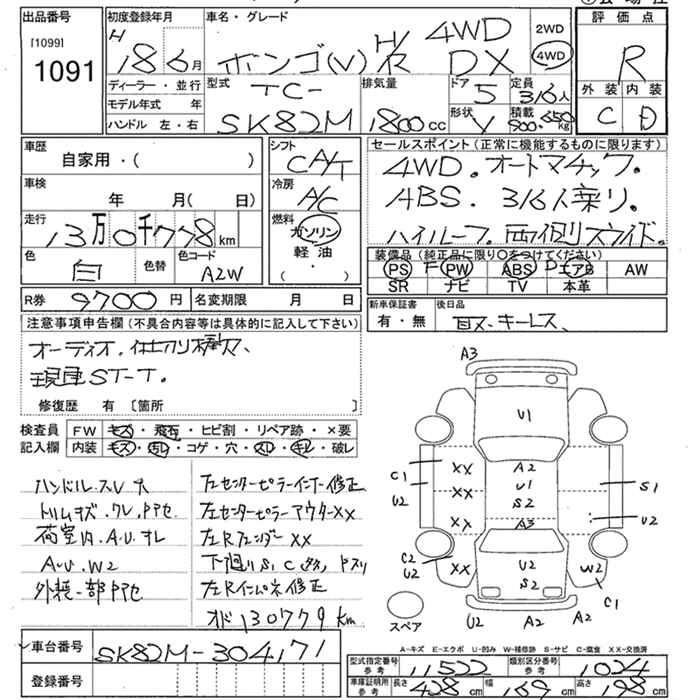 出品番号
[1099]
1091
初度登録年月
H 18 6月
車名・グレード
ホンゴ(V) H/R 4WD DX
2WD
4WD
評価点
R
外装 内装
C D
ディーラー・並行
モデル年式 年
ハンドル 左・右
型式
TC-
SK82M
排気量
1800cc
ドア
5
形状
V
定員
3/6人
積載
500.650kg
車歴
自家用・( )
車検
年 月( 日)
走行
13万0千778km
色
白
色替
色コード
A2W
シフト
CA/T
冷房
A/C
燃料
ガソリン
軽油
( ・ )
セールスポイント(正常に機能するものに限ります)
4WD.オートマチック.
ABS. 3/6人乗り.
ハイルーフ.両側スライド.
装備品(純正品に限り○をつけてください)
PS F PW ABS D エアB AW
SR ナビ TV 本革
R券 9700円
名変期限 月 日
新車保証書
有・無
後日品
取、キーレス、
注意事項申告欄(不具合内容等は具体的に記入して下さい)
オーディオ.仕切り棒欠.
現車ST-T.
修復歴 有 〔箇所 〕
検査員
記入欄
FW キズ・飛石・ヒビ割・リペア跡・×要
内装 キズ・汚レ・コゲ・穴・スレ・キレ・破レ
ハンドル.スレ 穴
トリムキズ.ワレ.ヤケセ
荷室内.A.U.オレ
A.U.W2
外装一部ヤケセ
左センターピラーインナー修正
左センターピラーアウターXX
左Rフェンダー XX
下廻り S, C
左Rインパネ修正
オド 130779km
A3
U1
A2
U1
S2
A3
U2
S2
XX
XX
XX
XX
C1
U2
C2
U2
S1
U2
W2
C1
U2
A2
A2
スペア
A-キズ E-エクボ U-凹み W-補修跡 S-サビ C-腐食 XX-交換済
車台番号
SK82M-304171
登録番号
型式指定番号
参考
11522
類別区分番号
参考
1024
車庫証明用
参考
長さ 428cm 幅 169cm 高さ 198cm